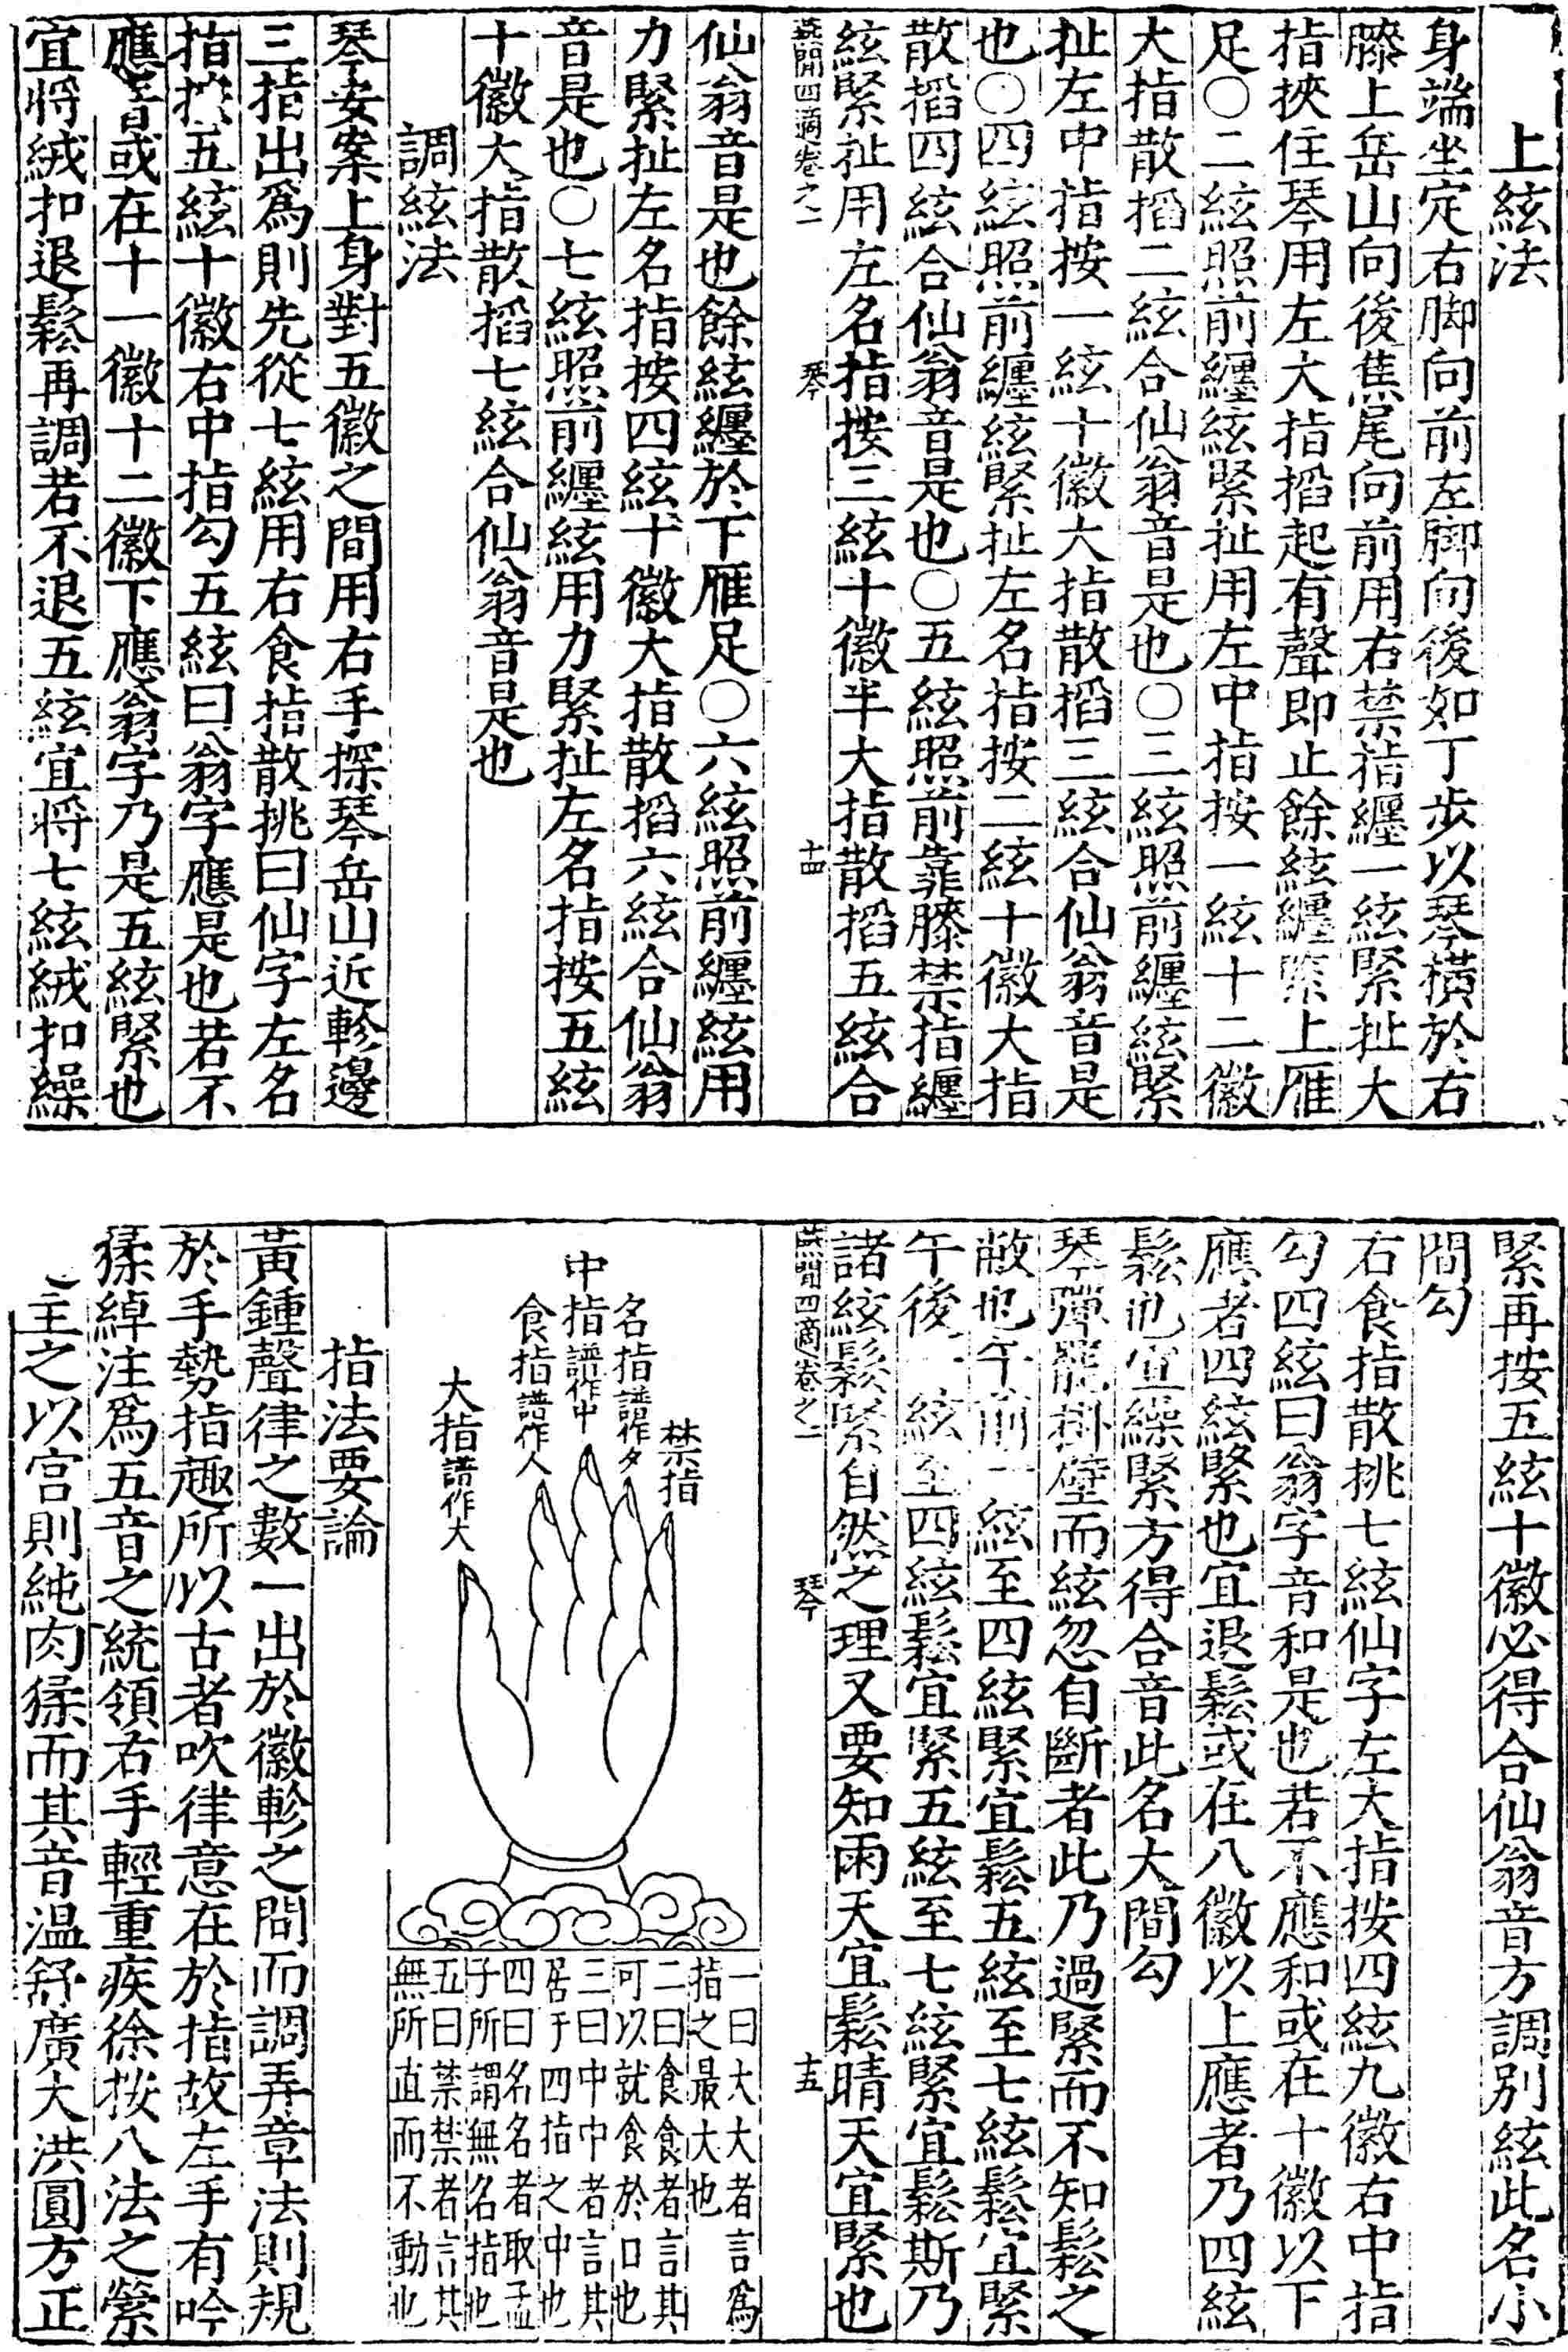 上絃法
身端坐定右脚向前左脚向後如丁步以琴橫於右
膝上岳山向後焦尾向前用右禁指纏一絃緊扯大
指挾住琴用左大指搯起有聲即止餘絃纏緊上雁
足○二絃照前纏絃緊扯用左中指按一絃十二徽
大指散搯二絃合仙翁音是也○三絃照前纏絃緊
扯左中指按一絃十徽大指散搯三絃合仙翁音是
也○四絃照前纏絃緊扯左名指按二絃十徽大指
散搯四絃合仙翁音是也○五絃照前靠膝禁指纏
絃緊扯用左名指按三絃十徽半大指散搯五絃合
燕閒四適卷之一 琴 十四
仙翁音是也餘絃纏於下雁足○六絃照前纏絃用
力緊扯左名指按四絃十徽大指散搯六絃合仙翁
音是也○七絃照前纏絃用力緊扯左名指按五絃
十徽大指散搯七絃合仙翁音是也
調絃法
琴安案上身對五徽之間用右手探琴岳山近軫邊
三指出爲則先從七絃用右食指散挑曰仙字左名
指按五絃十徽右中指勾五絃曰翁字應是也若不
應音或在十一徽十二徽下應翁字乃是五絃緊也
宜將絨扣退鬆再調若不退五絃宜將七絃絨扣繰
緊再按五絃十徽必得合仙翁音方調別絃此名小
間勾
右食指散挑七絃仙字左大指按四絃九徽右中指
勾四絃曰翁字音和是也若不應和或在十徽以下
應者四絃緊也宜退鬆或在八徽以上應者乃四絃
鬆也宜繰緊方得合音此名大間勾
琴彈罷掛壁而絃忽自斷者此乃過緊而不知鬆之
敝也午前一絃至四絃緊宜鬆五絃至七絃鬆宜緊
午後一絃至四絃鬆宜緊五絃至七絃緊宜鬆斯乃
諸絃鬆緊自然之理又要知雨天宜鬆晴天宜緊也
燕閒四適卷之一 琴 十五
禁指
名指譜作夕
中指譜作中
食指譜作人
大指譜作大
一曰大大者言爲
指之最大也
二曰食食者言其
可以就食於口也
三曰中中者言其
居于四指之中也
四曰名名者取孟
子所謂無名指也
五曰禁禁者言其
無所直而不動也
指法要論
黃鍾聲律之數一出於徽軫之間而調弄章法則規
於手勢指趣所以古者吹律意在於指故左手有吟
猱綽注爲五音之統領右手輕重疾徐按八法之縈
主之以宫則純肉猱而其音温舒廣大洪圓方正